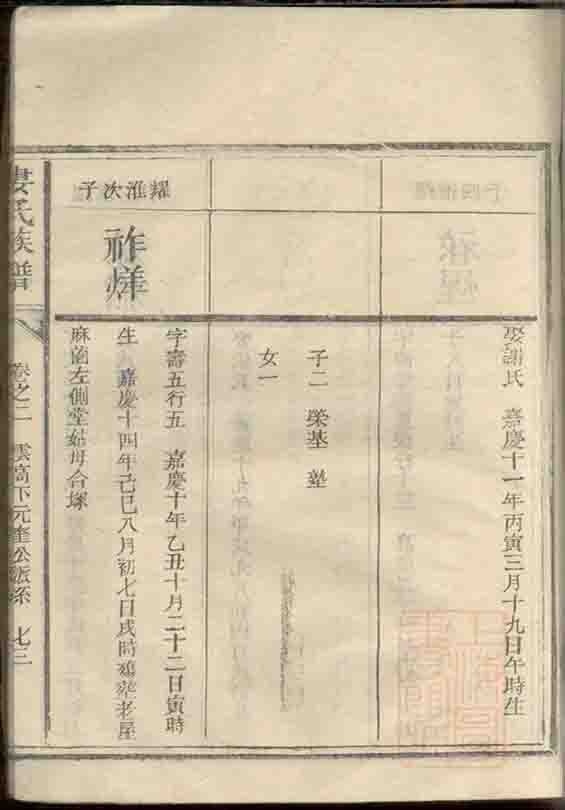 娶謝氏 嘉慶十一年丙寅三月十九日午時生
子二 榮基 塋
女一
耀淮次子
祚烊
字壽五行五 嘉慶十年乙丑十月二十二日寅時
生 嘉慶十四年己巳八月初七日戌時殤葬老屋
麻園左側堂姑母合塚
婁氏族譜 卷之二 雲高下元奎公派系 七三